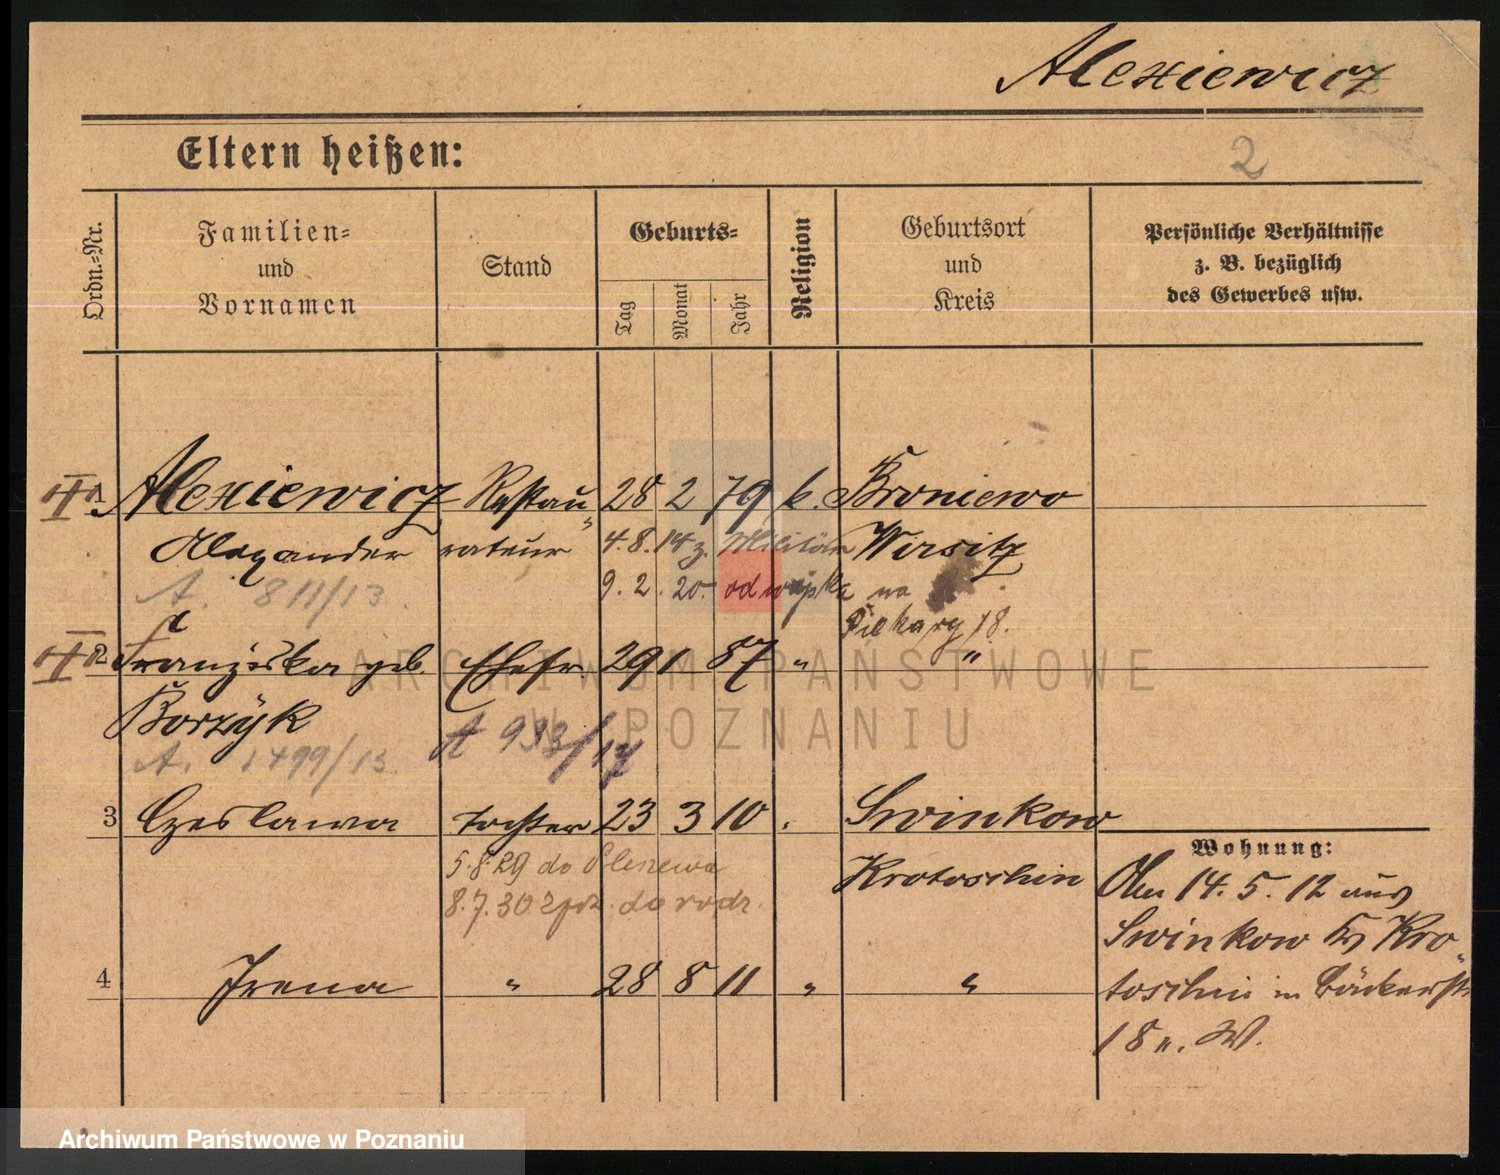 Alexiewicz
Eltern heißen:
2
Ordn.=Nr.
Familien=
und
Vornamen
Stand
Geburts=
Tag
Monat
Jahr
Religion
Geburtsort
und
Kreis
Persönliche Verhältnisse
z. B. bezüglich
des Gewerbes usw.
1 Alexiewicz Restau„ 28 2 79 k. Broniewo
Alexander rateur 4.8.14 z. Militär Wirsitz
A. 811/13 9. 2. 20. od wojska na
Piekary 18.
2 Franziska geb. Ehefr. 29 1 87 „ „
Borzyk
A. 1499/13 A 933/17
3 Czeslawa Tochter 23 3 10 „ Swinkow
5.8.29 do Pleszewa Krotoschin
8.7.30 z do rodz.
4 Irena „ 28 8 11 „ „
Wohnung:
14. 5. 12 aus
Swinkow Krs Kro„
toschin in Bäckerstr
18 n. W.
ARCHIWUM PAŃSTWOWE
W POZNANIU
Archiwum Państwowe w Poznaniu